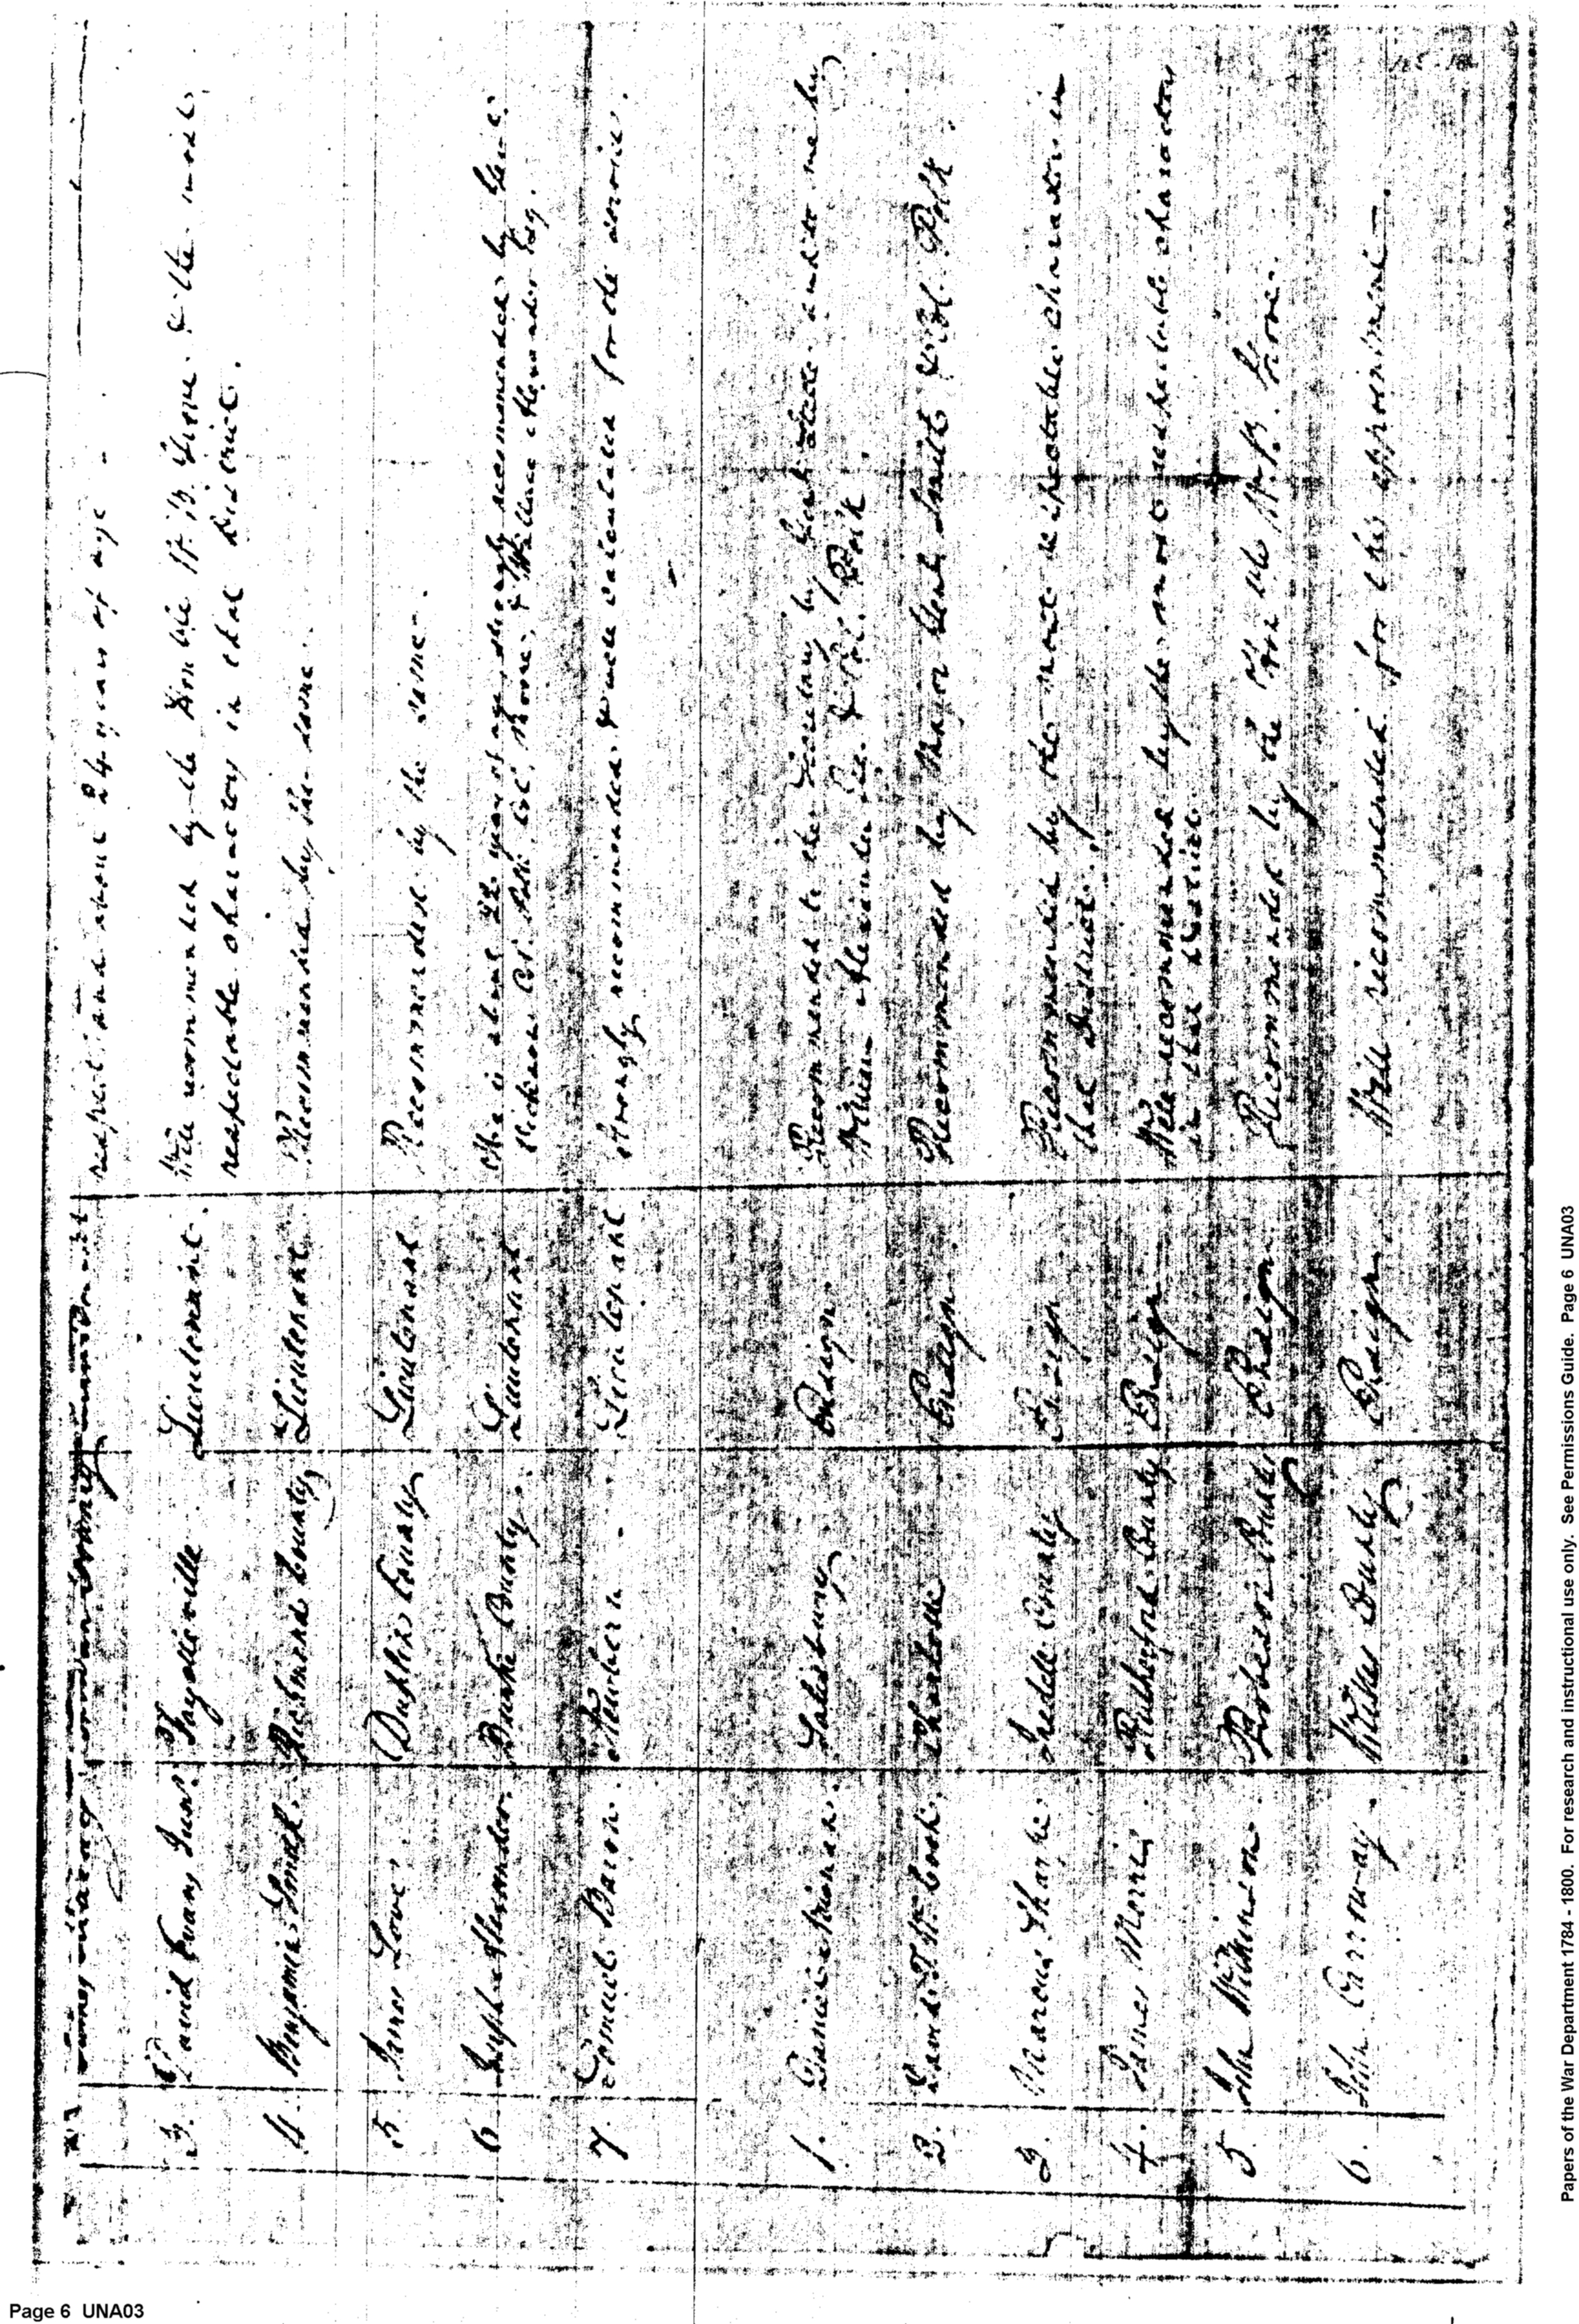 respect and about 24 years of age -
3. David Evans Junr. Fayetteville Lieutenant. Well recommended by the Honble W. B. Grove & the most
respectable characters in that District.
4. Benjamin Smith. Richmond County Lieutenant Recommended by the same.
5 James Love. Duplin County Lieutenant Recommended by the same.
6 Joseph Alexander. Burke County. Lieutenant He is about 22 years of age, strongly recommended by
Dickson Col. Moore, & Wallace Alexander Esq.
7. Samuel Bacon. Newbern Lieutenant Strongly recommended, & well calculated for the service.
1. Salisbury Ensign Recommended to the Secretary by and to me by
William Alexander Esq. & Col. Polk
2. Charlotte Ensign Recommended by Major Smith & Col. Polk.
3. Marcus Sharpe. Iredell County Ensign Recommended by the most respectable characters in
that District.
4. James Morris. Rutherford County Ensign Well recommended by the most respectable characters
in that District.
5 John Wilkinson. Robeson County Ensign Recommended by the Honble W. B. Grove.
6. John Carraway. Ensign Well recommended for this appointment —
Papers of the War Department 1784 - 1800. For research and instructional use only. See Permissions Guide. Page 6 UNA03
Page 6 UNA03